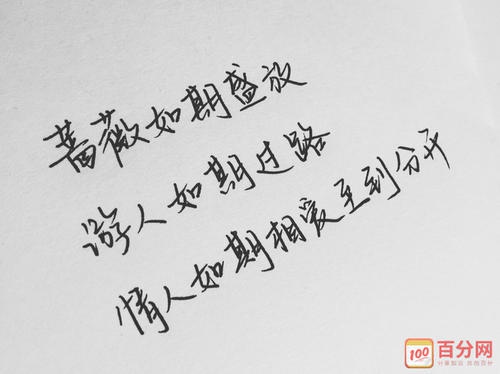 蔷薇如期盛放
游人如期过路
情人如期相爱至到分开
百分网